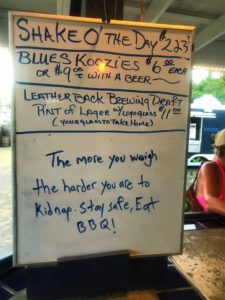 SHAKE O' THE DAY $2.23
BLUES KOOZIES $6.00 EACH
OR $9.00 WITH A BEER
LEATHER BACK BREWING DRAFT
PINT OF LAGER W/LOGO GLASS $11.00
(YOUR GLASS TO TAKE HOME)
The more you weigh
the harder you are to
Kidnap. Stay safe, Eat
BBQ!